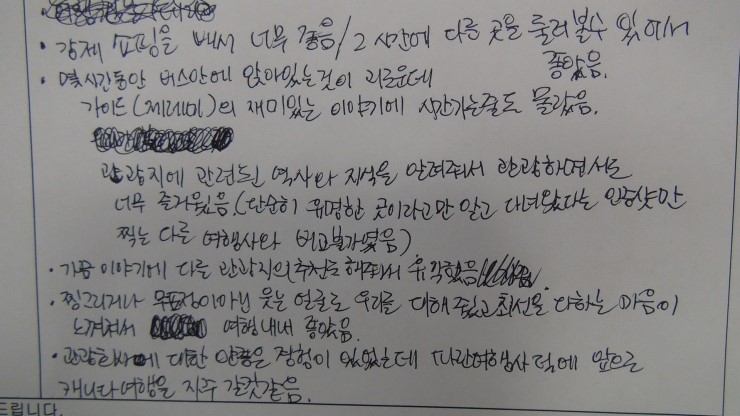 · 강제 쇼핑을 빼서 너무 좋음 / 그 시간에 다른 곳을 둘러 볼수 있어서
좋았음.
· 몇시간동안 버스안에 앉아있는것이 괴로운데
가이드(제레미)의 재미있는 이야기에 시간가는줄도 몰랐음.
관광지에 관련된 역사와 지식을 알려줘서 관광하면서도
너무 즐거웠음. (단순히 유명한 곳이라고만 알고 다녀왔다는 인증샷만
찍는 다른 여행사와 비교불가였음)
· 가끔 이야기에 다른 관광지의 추천도 해줘서 유익했음
· 찡그리거나 무표정이아닌 웃는 얼굴로 우리를 대해 주었고 최선을 다하는 마음이
느껴져서 여행내내 좋았음.
· 관광회사에 대한 안좋은 경험이 있었는데 여행사 덕에 앞으로
캐나다여행을 자주 갈것같음.
드립니다.